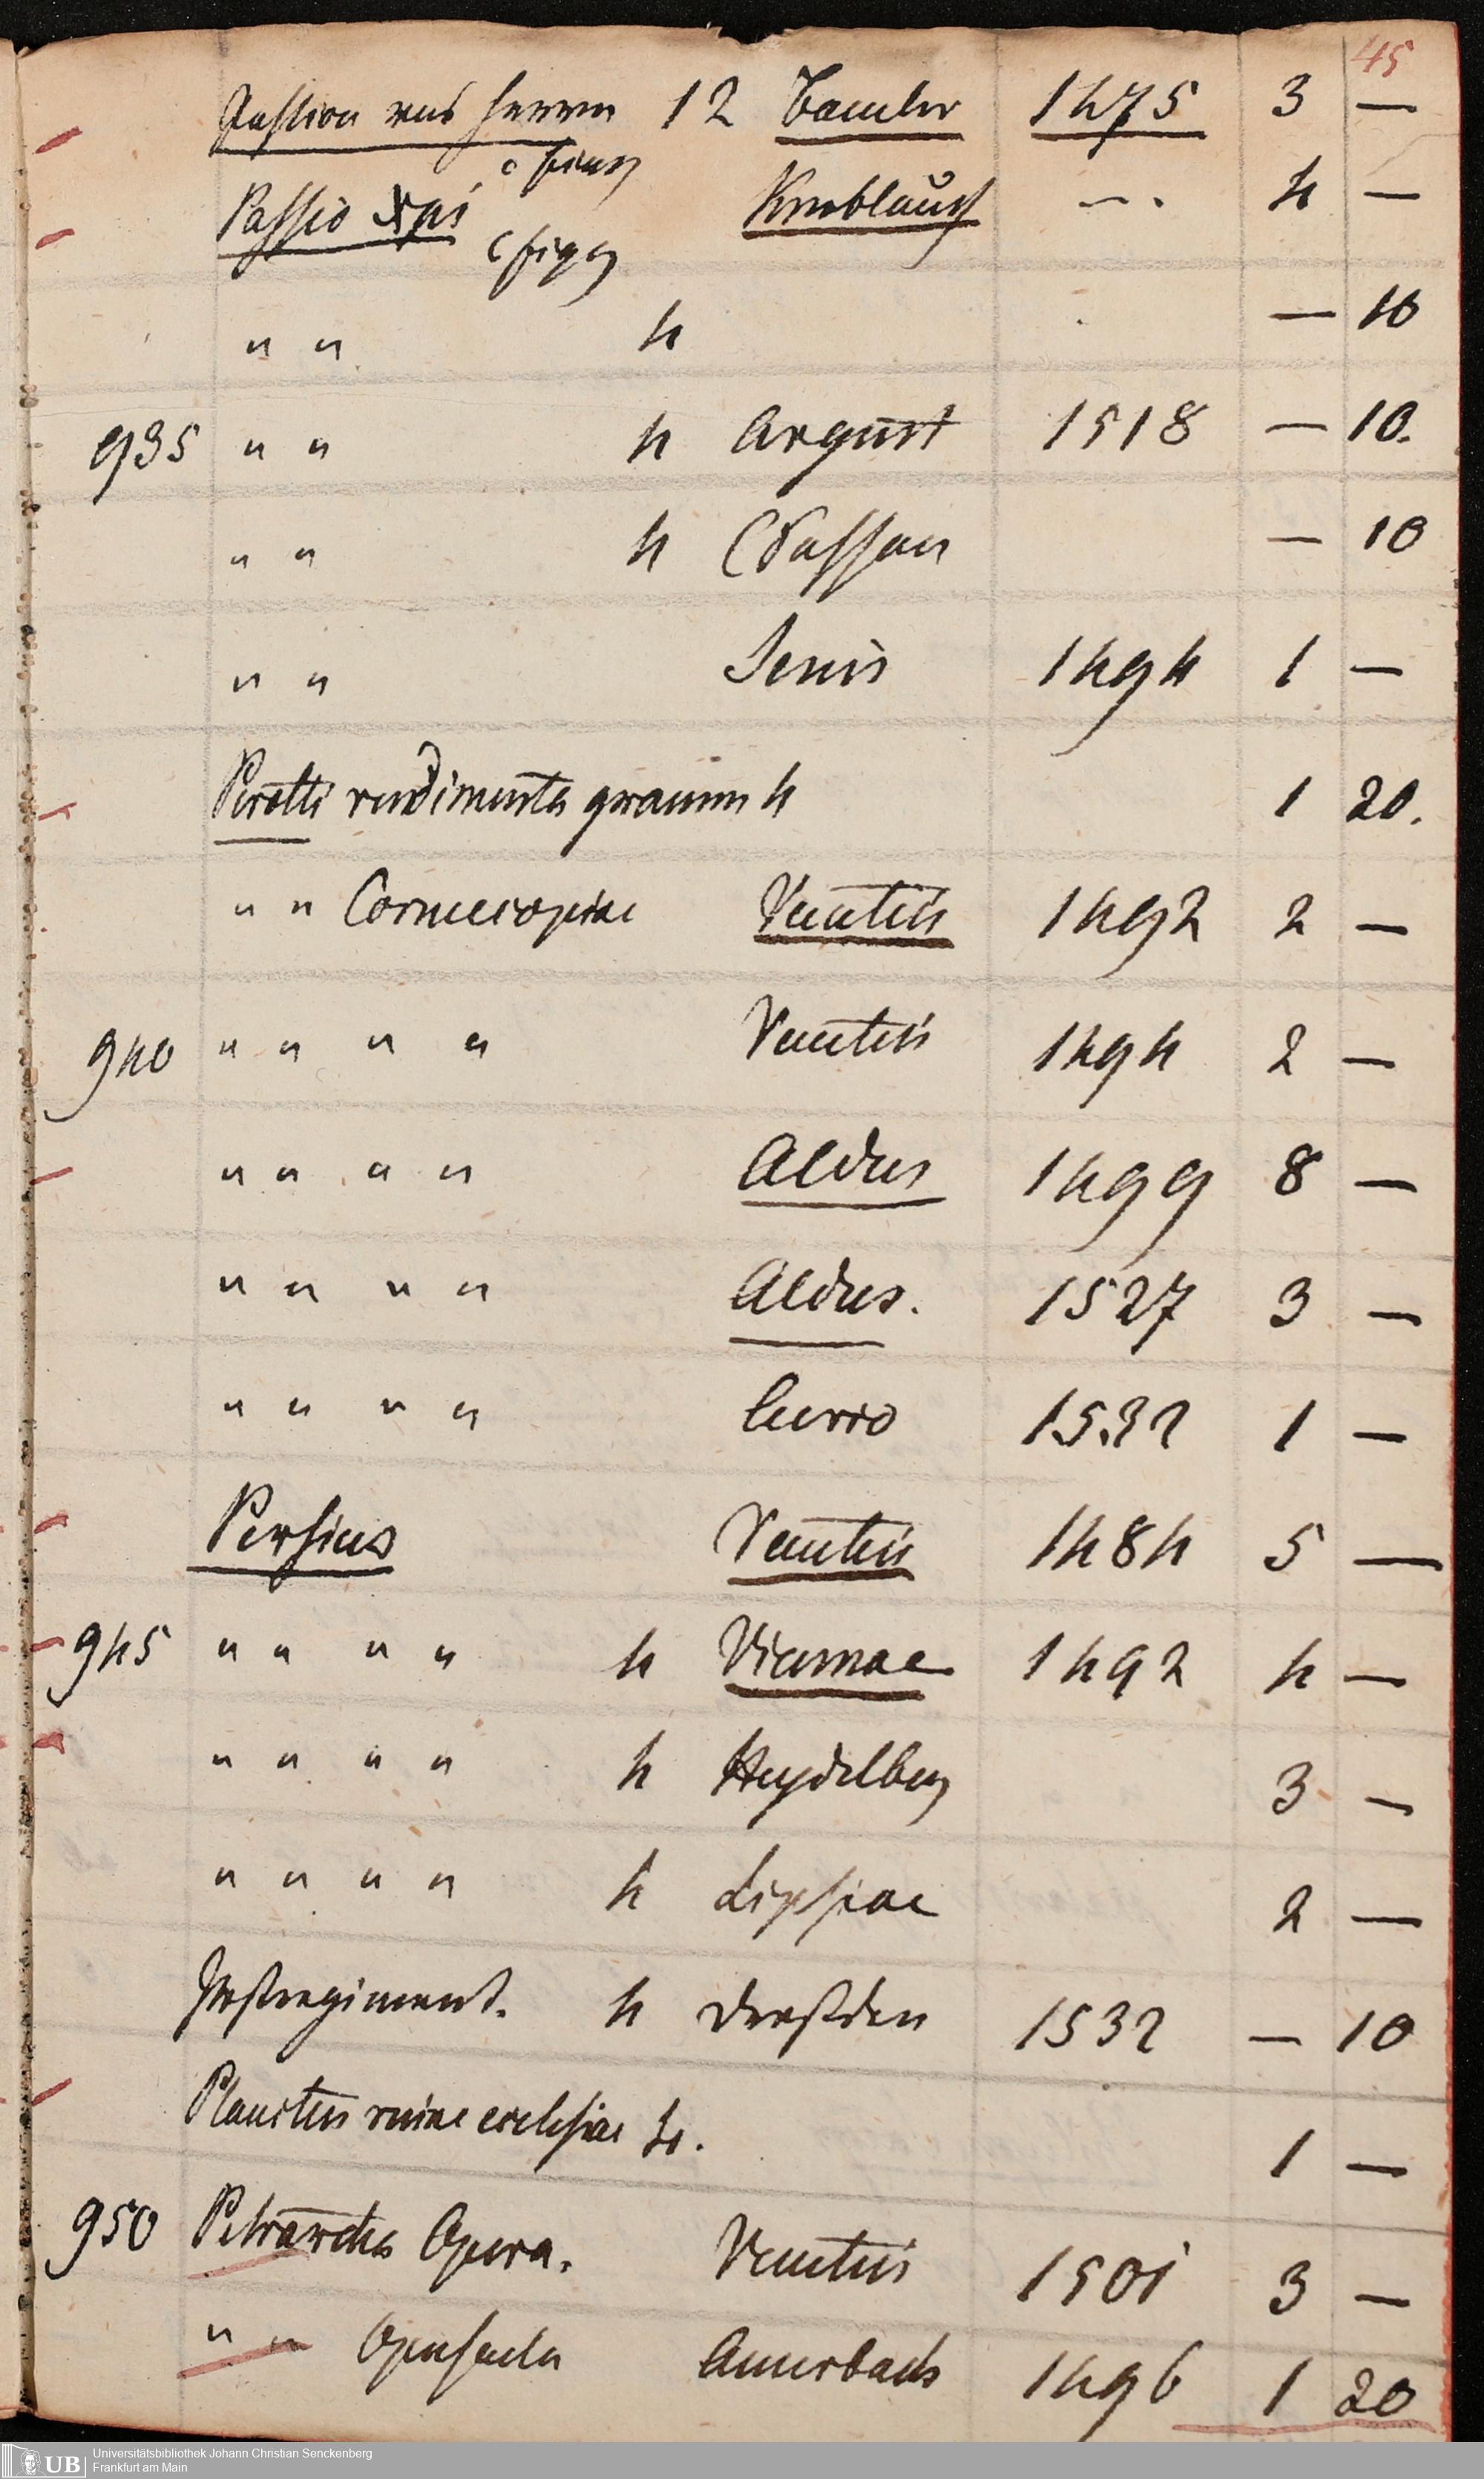 45
Passion uns Herren 12 Bamler 1475 3 —
c fig
Passio Xpi Knoblauch — . 4 —
c figg
" " 4 — 10
935 " " 4 Argent 1518 — 10.
" " 4 — 10
" " 1494 1 —
Perotti rudimenta gramm 4 1 20.
" " Cornucopiae Venetiis 1492 2 —
940 " " " " Venetiis 1494 2 —
" " " " Aldus 1499 8 —
" " " " Aldus. 1527 3 —
" " " " Curio 1532 1 —
Persius Venetiis 1484 5 —
945 " " " " 4 Viennae 1492 4 —
" " " " 4 Heydelberg 3 —
" " " " 4 Lipsiae 2 —
Pestregiment. 4 Dresden 1532 — 10
Planctus ruine ecclesiae 4. 1 —
950 Petrarcha Opera. Venetiis 1501 3 —
" " Opuscula Amerbach 1496 1 20
UB
Universitätsbibliothek Johann Christian Senckenberg
Frankfurt am Main